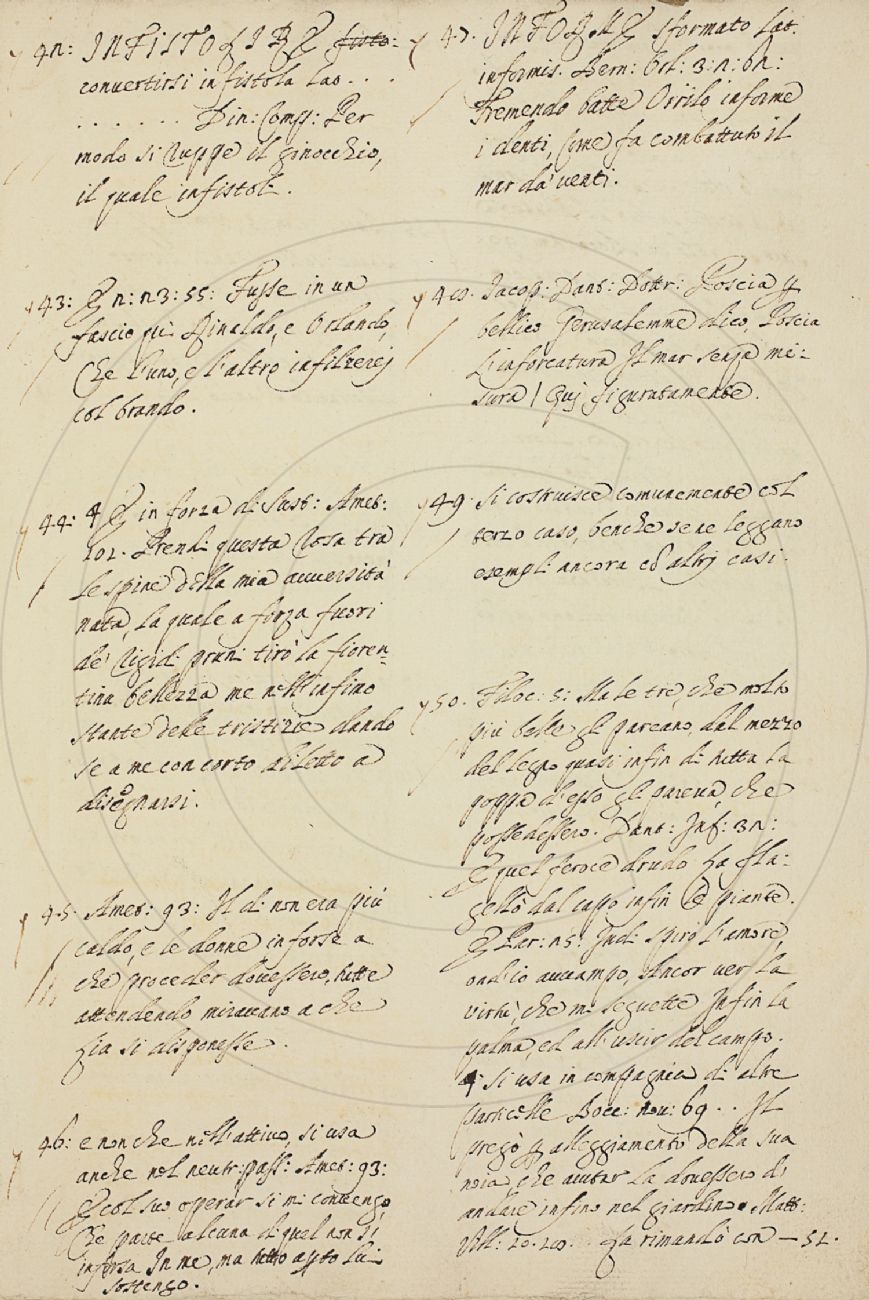 42: INFISTOLIRE fisto:
convertirsi in fistola Lao. . .
. . . . . . . Din: Comp: Per
modo si ruppe il ginocchio,
il quale infistolì.
43: E 2: 23: 55: Fusse in un
fascio qui Rinaldo, e Orlando,
Che l'uno, e l'altro infilzerej
col brando.
44: E in forza di Sust: Amet:
101. Prendi questa rosa tra
le spine della mia avversità
nata, la quale a forza fuori
de' rigidi pruni tirò la fioren-
tina bellezza me nell'infimo
stante delle tristizie dando
se a me con corto diletto a
disegnarsi.
45. Amet: 93: Il dì non era più
caldo, e le donne in forse a
che proceder dovessero, tutte
attendendo miravano a che
Lia si disponesse.
46: e non che nell'attivo, si usa
anche nel neutr: pass: Amet: 93:
E col suo operar si mi convengo
Che parte alcuna di quel non si
inforsa In me, ma tutto
sostengo.
47. INFORME sformato Lat.
informis. Bern: Orl: 3: 2: 62:
Tremendo batte Orrilo informe
i denti, Come fa combattuto il
mar da' venti.
48. Jacop: Dant: Dottr: Poscia
bellico Gerusalemme dico, Poscia
L'inforcatura Il mar senza mi-
sura / Quj figuratamente.
49. si costruisce comunemente col
terzo caso, benche se ne leggano
esempli ancora cō altrj casi.
50. Filoc: 5: Ma le tre, che molto
più belle gli pareano, dal mezzo
del legno quasi infin di tutta la
poppa d'esso gli pareva, che
possedessero. Dant: Inf: 32:
E quel feroce drudo La fla-
gellò dal capo infin le piante.
E Par: 25: Indi spirò l'amore,
ond'io avvampo, Ancor ver la
virtù, che mi seguette Infin la
palma, ed all'uscir del campo.
si usa in compagnia di altre
particelle Bocc: nov: 69. . Il
pregò alleggiamento della sua
noia che aiutar la dovessero di
andare infino nel giardino. Matt:
Vill: 10. La rimandò con — 51.